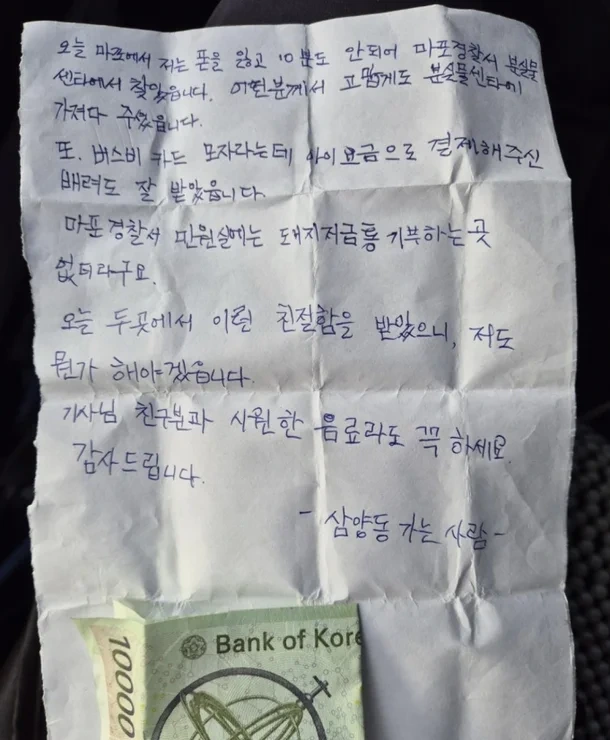 오늘 마포에서 저는 폰을 잃고 10분도 안되어 마포경찰서 분실물
센타에서 찾았읍니다. 어떤분께서 고맙게도 분실물센타에
가져다 주셨읍니다.
또. 버스비 카드 모자라는데 아이요금으로 결제해주신
배려도 잘 받았읍니다
마포경찰서 민원실에는 돼지저금통 기부하는 곳
없더라구요.
오늘 두곳에서 이런 친절함을 받았으니, 저도
뭔가 해야겠읍니다.
기사님 친구분과 시원한 음료라도 꼭 하세요.
감사드립니다.
- 삼양동 가는 사람 -
Bank of Kore
10000